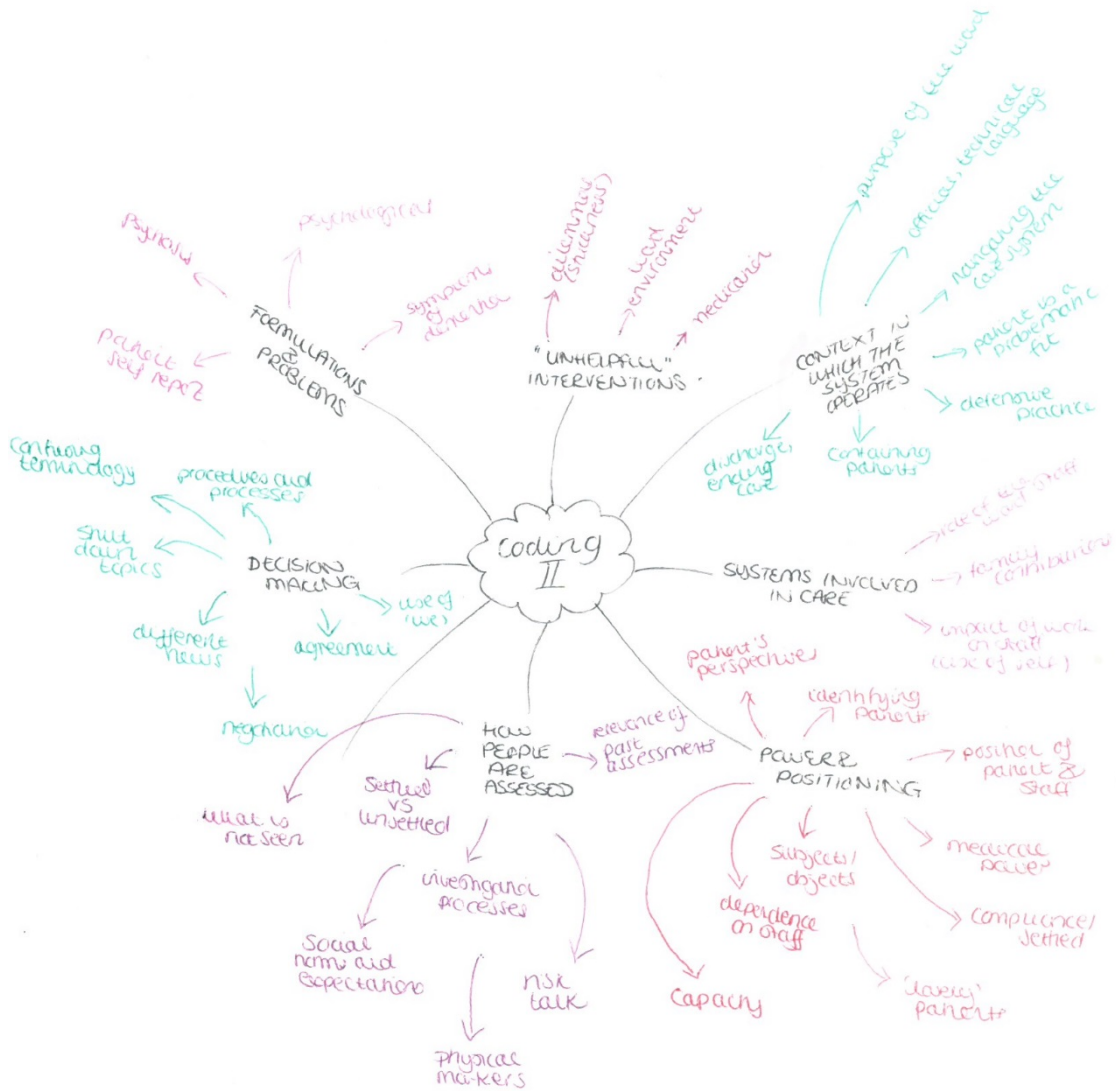 coding
II
FORMULATIONS
&
PROBLEMS
psychosis
psychological
symptoms
of
dementia
patient
self report
"UNHELPFUL"
INTERVENTIONS
dilemmas
ward
environment
medication
CONTEXT IN
WHICH THE
SYSTEM
OPERATES
purpose of the ward
official, technical
language
navigating the
care system
patient is a
problematic
fit
defensive
practice
containing
patients
discharge,
ending
care
SYSTEMS INVOLVED
IN CARE
role of
ward staff
family
contributions
impact of work
on staff
(use of self)
POWER &
POSITIONING
patient's
perspectives
identifying
patients
position of
patient &
staff
medical
power
compliance/
settled
subjects/
objects
'lovely'
patients
dependence
on staff
capacity
HOW
PEOPLE
ARE
ASSESSED
relevance of
past
assessments
settled
vs
unsettled
what is
not seen
investigation
processes
social
norms and
expectations
physical
markers
risk
talk
DECISION
MAKING
confusing
terminology
procedures and
processes
shut
down
topics
different
views
negotiation
agreement
use of
'we'